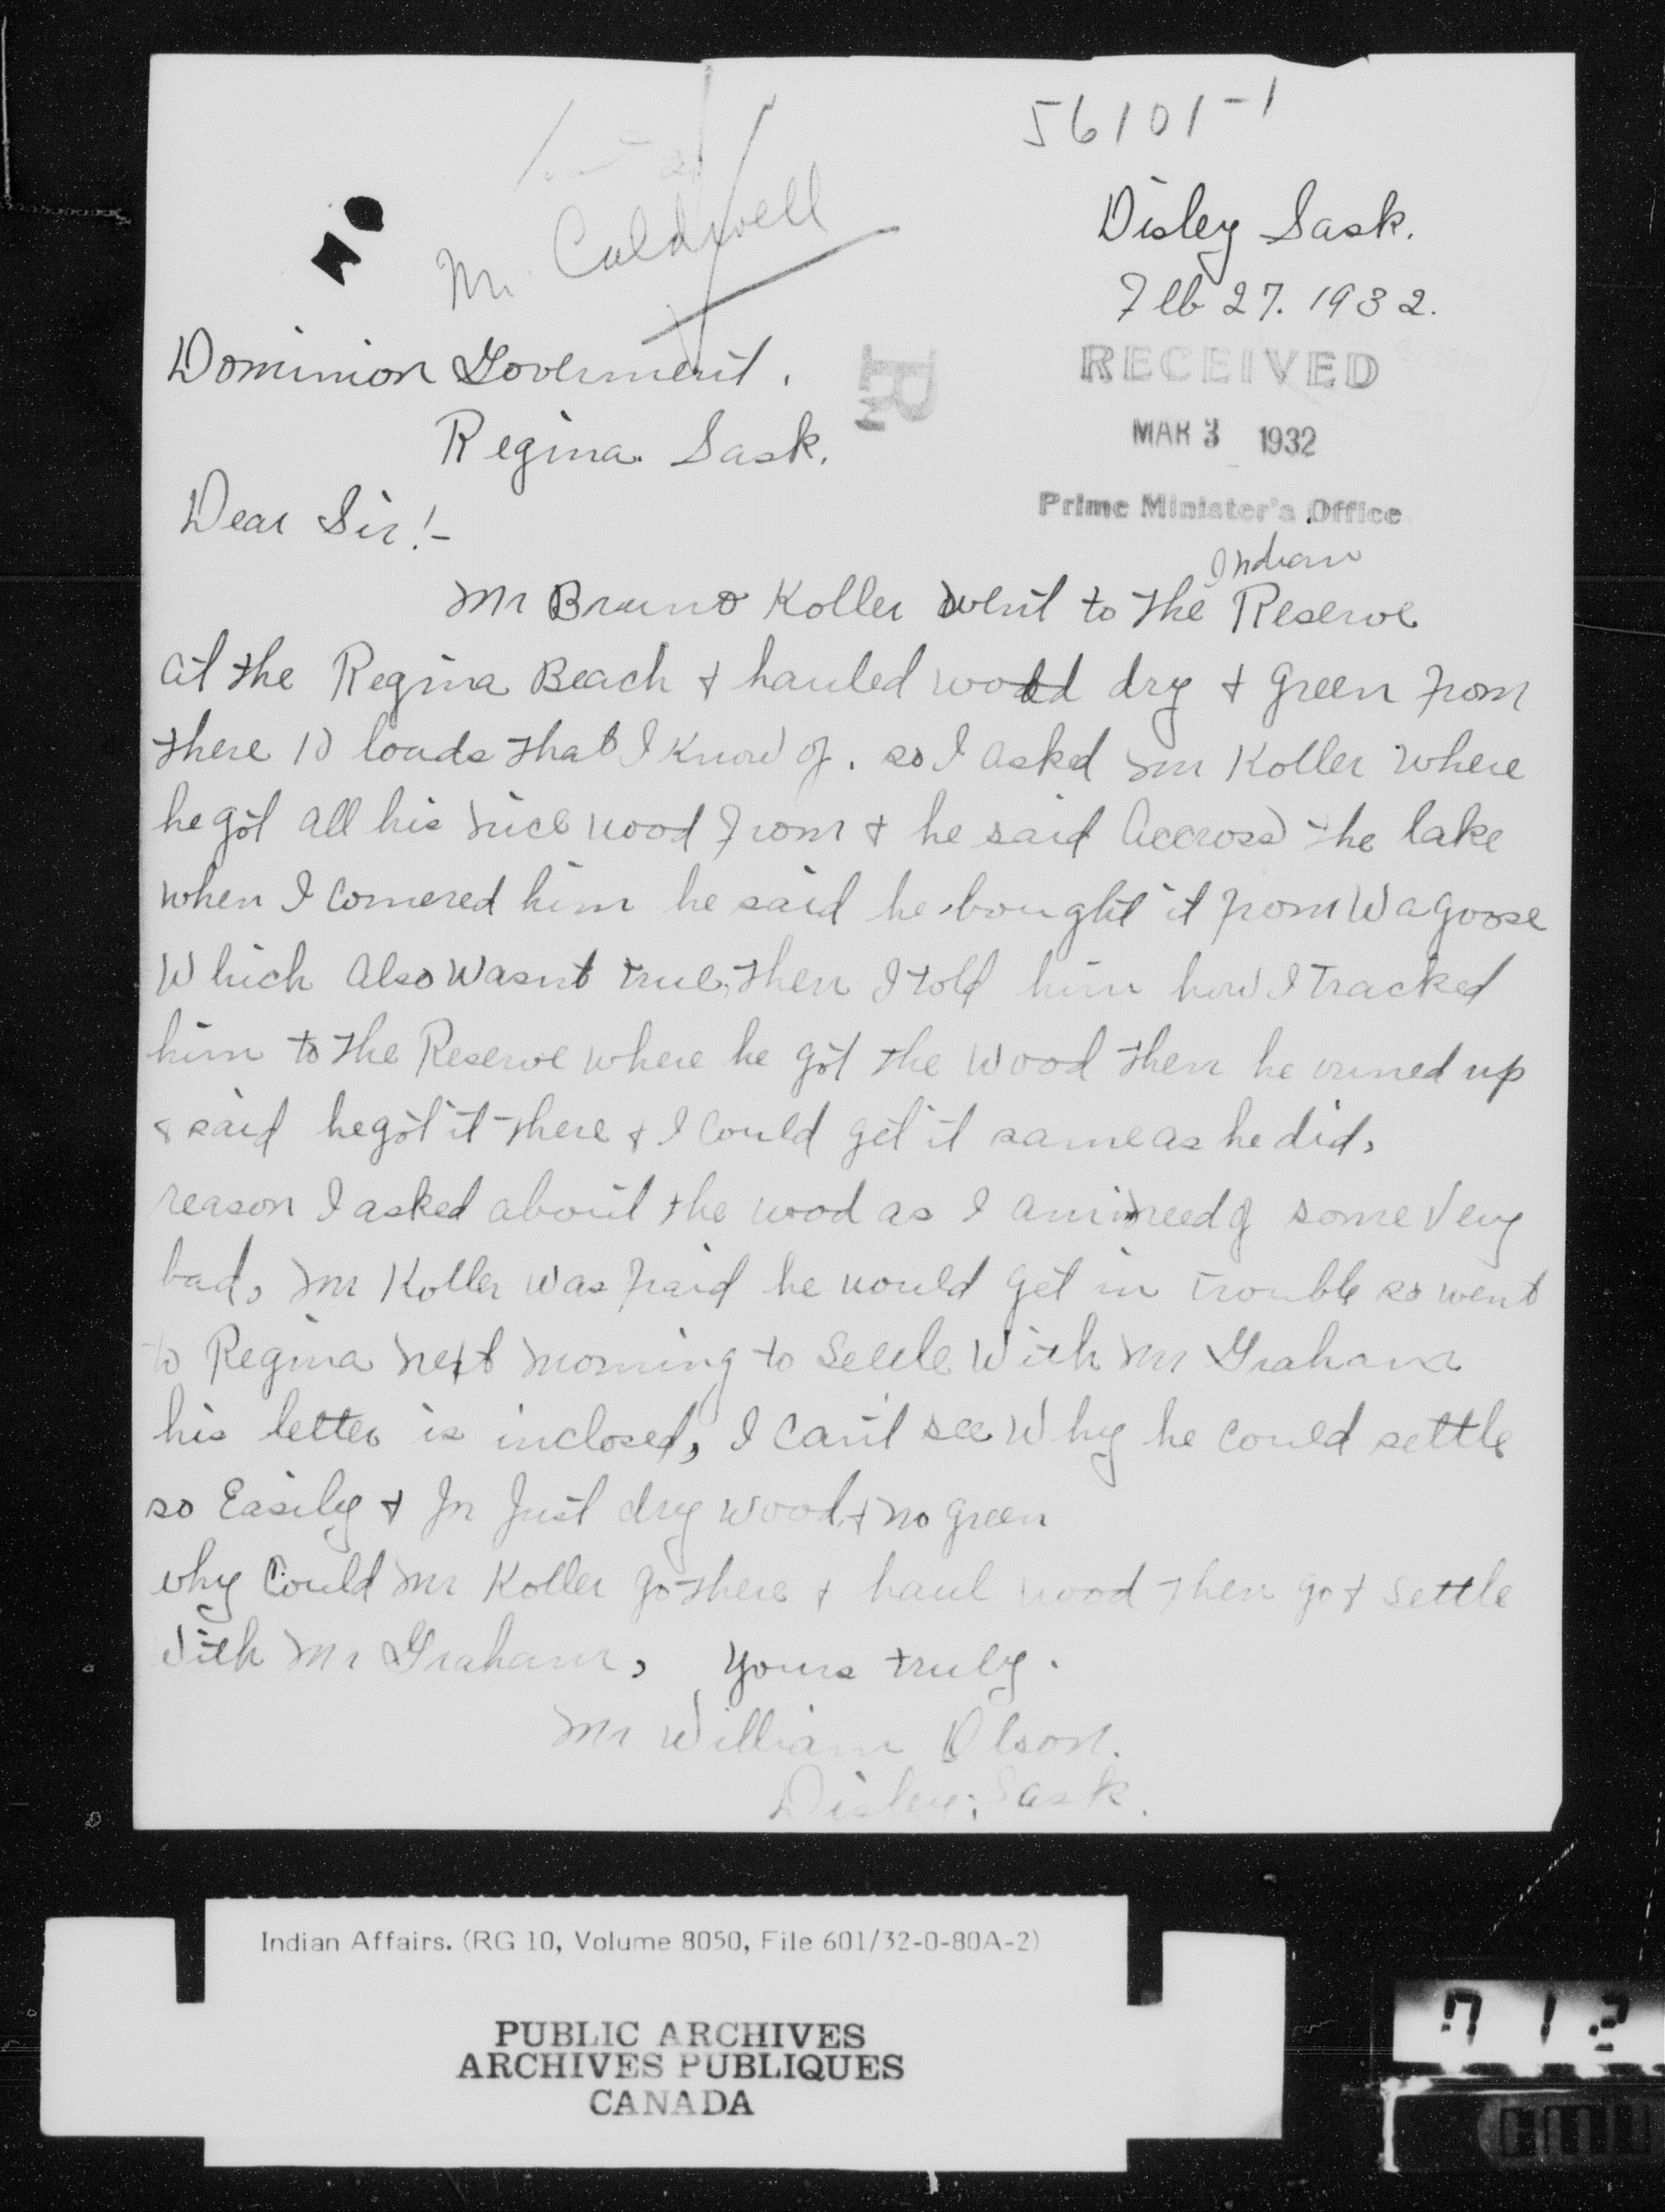 56101-1
Mr. Caldwell
Disley Sask.
Feb 27. 1932.
Dominion Goverment.
RECEIVED
MAR 3 1932
Prime Minister's Office
Regina. Sask.
Dear Sir!-
Indian
Mr Bruno Koller went to the Reserve
at the Regina Beach & hauled wood dry & green from
there 10 loads that I know of. so I asked Mr Koller where
he got all his nice wood from & he said accross the lake
when I cornered him he said he bought it from Wagoose
Which also wasnt true, then I told him how I tracked
him to the Reserve where he got the wood then he owned up
& said he got it there & I could get it same as he did,
reason I asked about the wood as I am in need of some very
bad, Mr Koller was fraid he would get in trouble so went
to Regina next morning to settle with Mr Graham
his letter is inclosed, I can't see why he could settle
so Easily & In Just dry wood & no green
why could Mr Koller go there & haul wood then go & settle
with Mr Graham, yours truly.
Mr William Olson.
Disley; Sask.
Indian Affairs. (RG 10, Volume 8050, File 601/32-0-80A-2)
PUBLIC ARCHIVES
ARCHIVES PUBLIQUES
CANADA